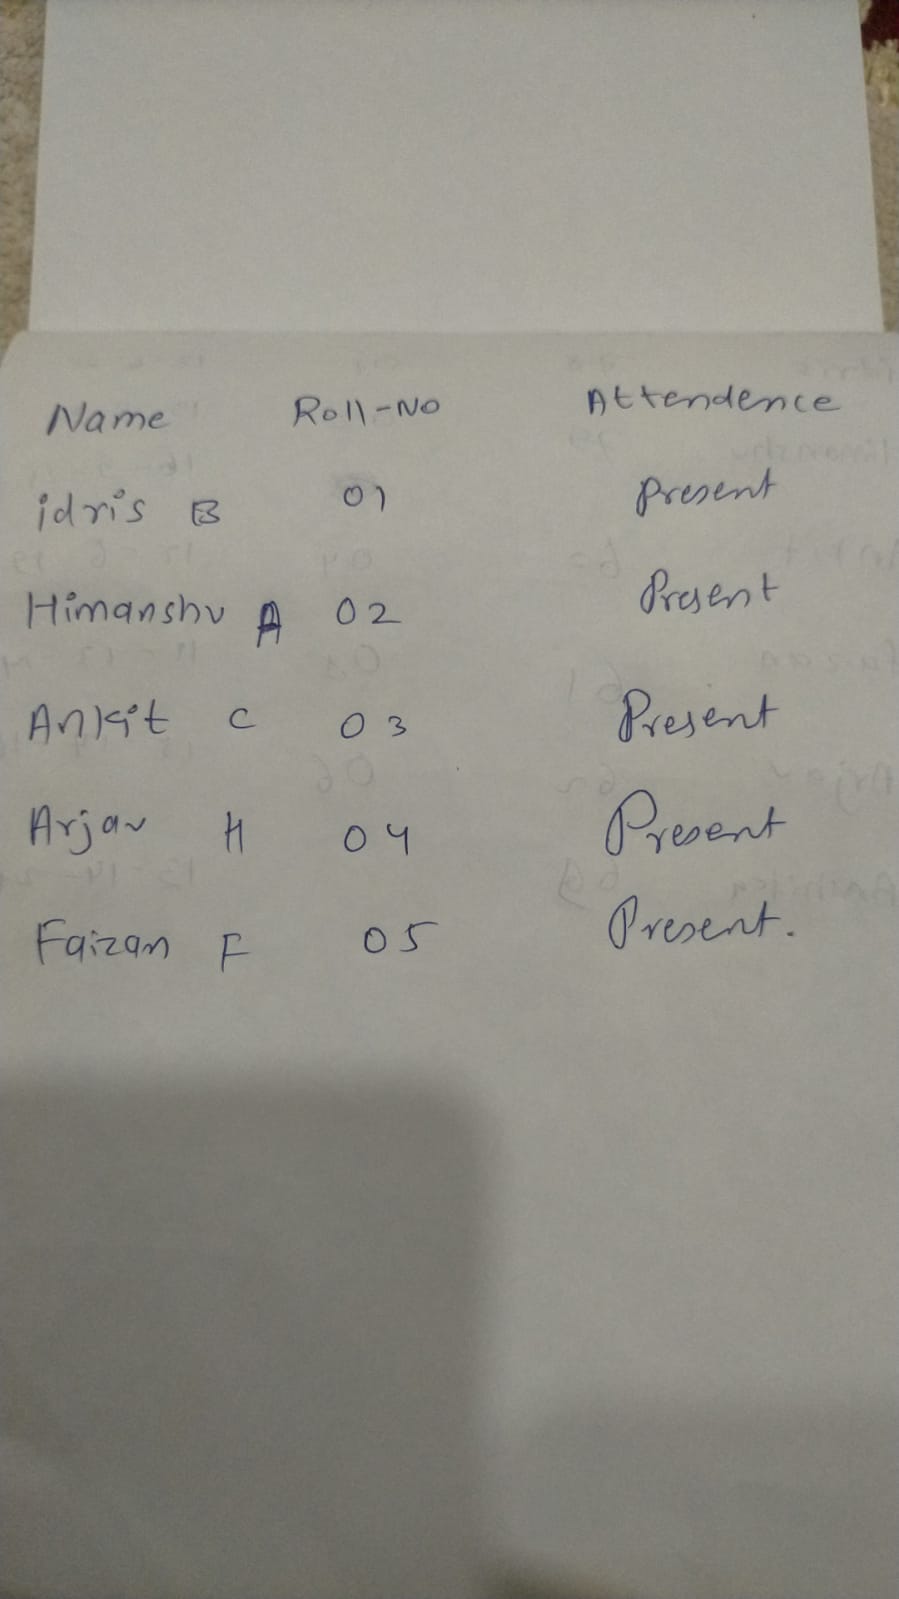 Name Roll-No Attendence
idris B 01 Present
Himanshu A 02 Present
Ankit C 03 Present
Arjav H 04 Present
Faizan F 05 Present.